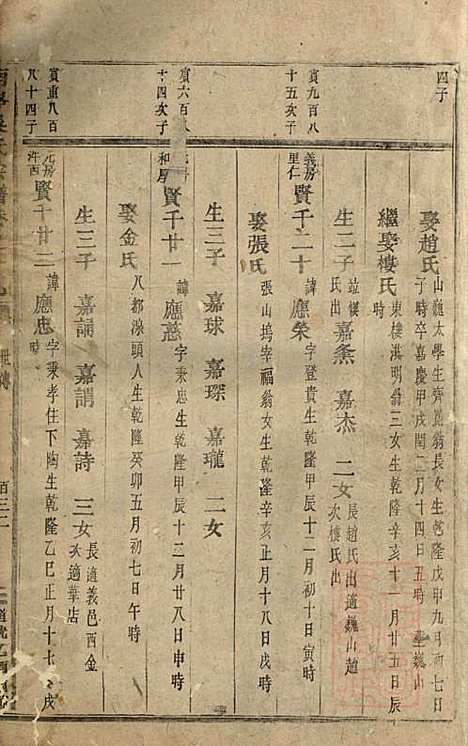 四子
娶趙氏 山巍太學生齊崑翁長女生乾隆戊申九月初七日
子時卒嘉慶甲戌閏二月十四日五時 巍山
繼娶樓氏 東樓淇明翁三女生乾隆辛亥十一月廿五日辰
時
生二子 嘉 嘉杰 二女 長趙氏出適巍山趙
次樓氏出
寅九百八
十五次子
義房
里仁
賢千二十 諱應榮 字登貴生乾隆甲辰十一月初十日寅時
娶張氏 張山塢宰福翁女生乾隆辛亥正月十八日戌時
生三子 嘉球 嘉琛 嘉瓏 二女
寅六百八
十四次子
和房
賢千廿一 諱應慈 字秉忠生乾隆甲辰十二月廿八日申時
娶金氏 八都滾頭人生乾隆癸卯五月初七日午時
生三子 嘉誦 嘉謂 嘉詩 三女 長適義邑西金
次適葉店
寅重八百
八十四子
元房
許西
賢千廿二 諱應忠 字秉孝住下陶生乾隆乙巳正月十七日戌
時